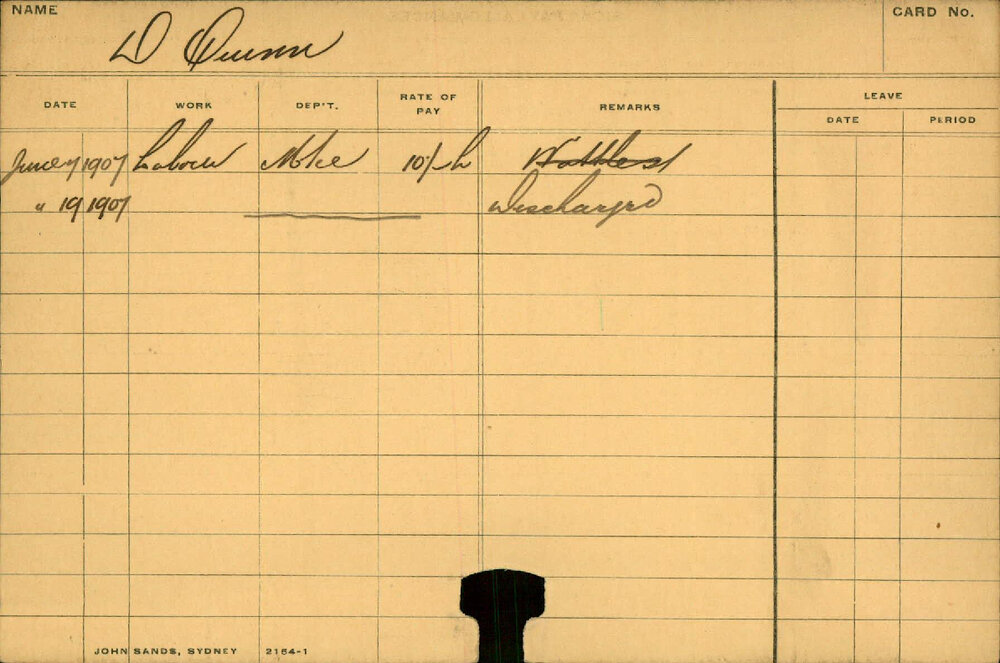 NAME
D Quinn
CARD No.
DATE WORK DEP'T. RATE OF PAY REMARKS LEAVE
DATE PERIOD
June 7 1907 Labour
" 19 1907 Discharged
JOHN SANDS, SYDNEY 2154-1